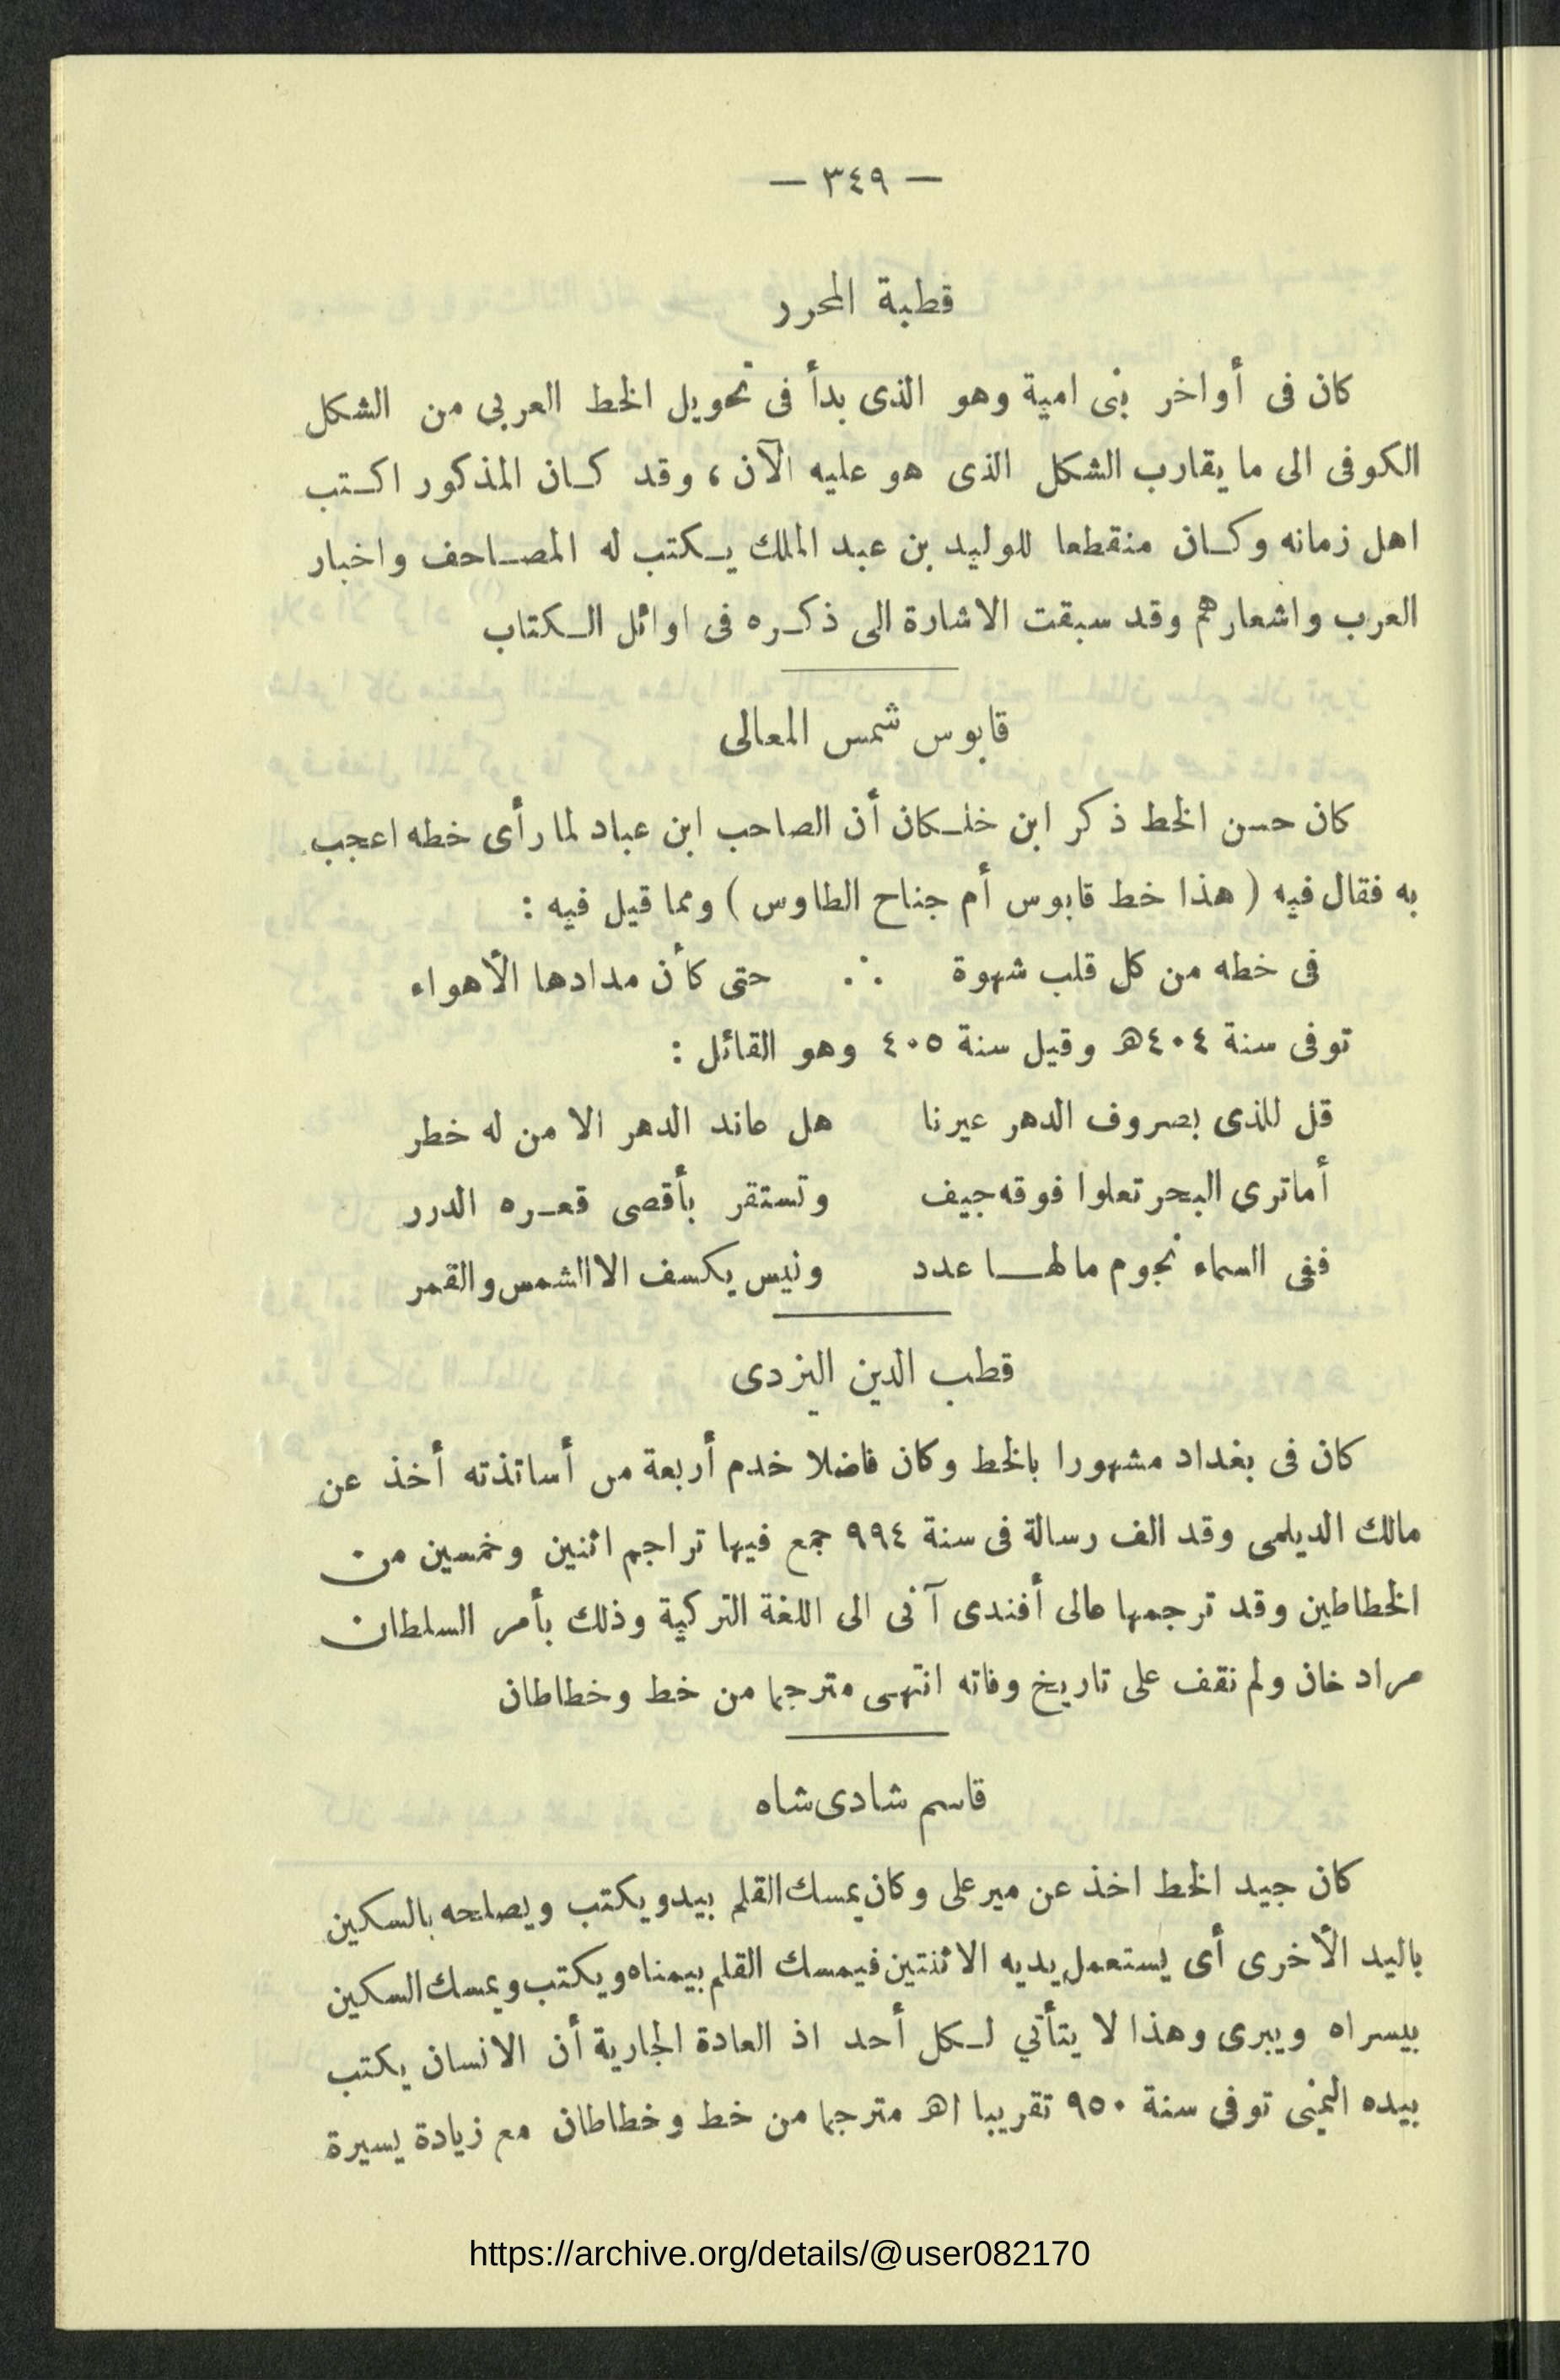 — ٣٤٩ —
قطبة المحرر
كان فى أواخر بنى امية وهو الذى بدأ فى تحويل الخط العربى من الشكل
الكوفى الى ما يقارب الشكل الذى هو عليه الآن ، وقد كان المذكور اكتب
اهل زمانه وكان منقطعا للوليد بن عبد الملك يكتب له المصاحف واخبار
العرب واشعارهم وقد سبقت الاشارة الى ذكره فى اوائل الكتاب
قابوس شمس المعالى
كان حسن الخط ذكر ابن خلكان أن الصاحب ابن عباد لما رأى خطه اعجب
به فقال فيه ( هذا خط قابوس أم جناح الطاوس ) ومما قيل فيه :
فى خطه من كل قلب شهوة ∴ حتى كأن مدادها الأهواء
توفى سنة ٤٠٤هـ وقيل سنة ٤٠٥ وهو القائل :
قل للذى بصروف الدهر عيرنا هل عاند الدهر الا من له خطر
أماترى البحر تعلوا فوقه جيف وتستقر بأقصى قعره الدرر
ففى السماء نجوم مالها عدد وليس يكسف الا الشمس والقمر
قطب الدين اليزدى
كان فى بغداد مشهورا بالخط وكان فاضلا خدم أربعة من أساتذته أخذ عن
مالك الديلمى وقد الف رسالة فى سنة ٩٩٤ جمع فيها تراجم اثنين وخمسين من
الخطاطين وقد ترجمها عالى أفندى آ فى الى اللغة التركية وذلك بأمر السلطان
مراد خان ولم نقف على تاريخ وفاته انتهى مترجما من خط وخطاطان
قاسم شادى شاه
كان جيد الخط اخذ عن مير على وكان يمسك القلم بيد ويكتب ويصلحه بالسكين
باليد الأخرى أى يستعمل يديه الاثنتين فيمسك القلم بيمناه ويكتب ويمسك السكين
بيسراه ويبرى وهذا لا يتأتي لكل أحد اذ العادة الجارية أن الانسان يكتب
بيده اليمنى توفى سنة ٩٥٠ تقريبا اهـ مترجما من خط وخطاطان مع زيادة يسيرة
https://archive.org/details/@user082170